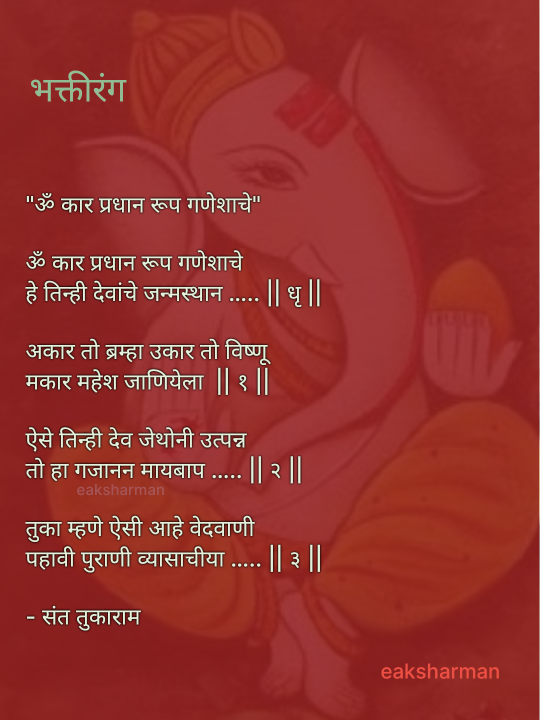 भक्तीरंग
"ॐ कार प्रधान रूप गणेशाचे"
ॐ कार प्रधान रूप गणेशाचे
हे तिन्ही देवांचे जन्मस्थान ..... || धृ ||
अकार तो ब्रम्हा उकार तो विष्णू
मकार महेश जाणियेला || १ ||
ऐसे तिन्ही देव जेथोनी उत्पन्न
तो हा गजानन मायबाप ..... || २ ||
eaksharman
तुका म्हणे ऐसी आहे वेदवाणी
पहावी पुराणी व्यासाचीया ..... || ३ ||
- संत तुकाराम
eaksharman